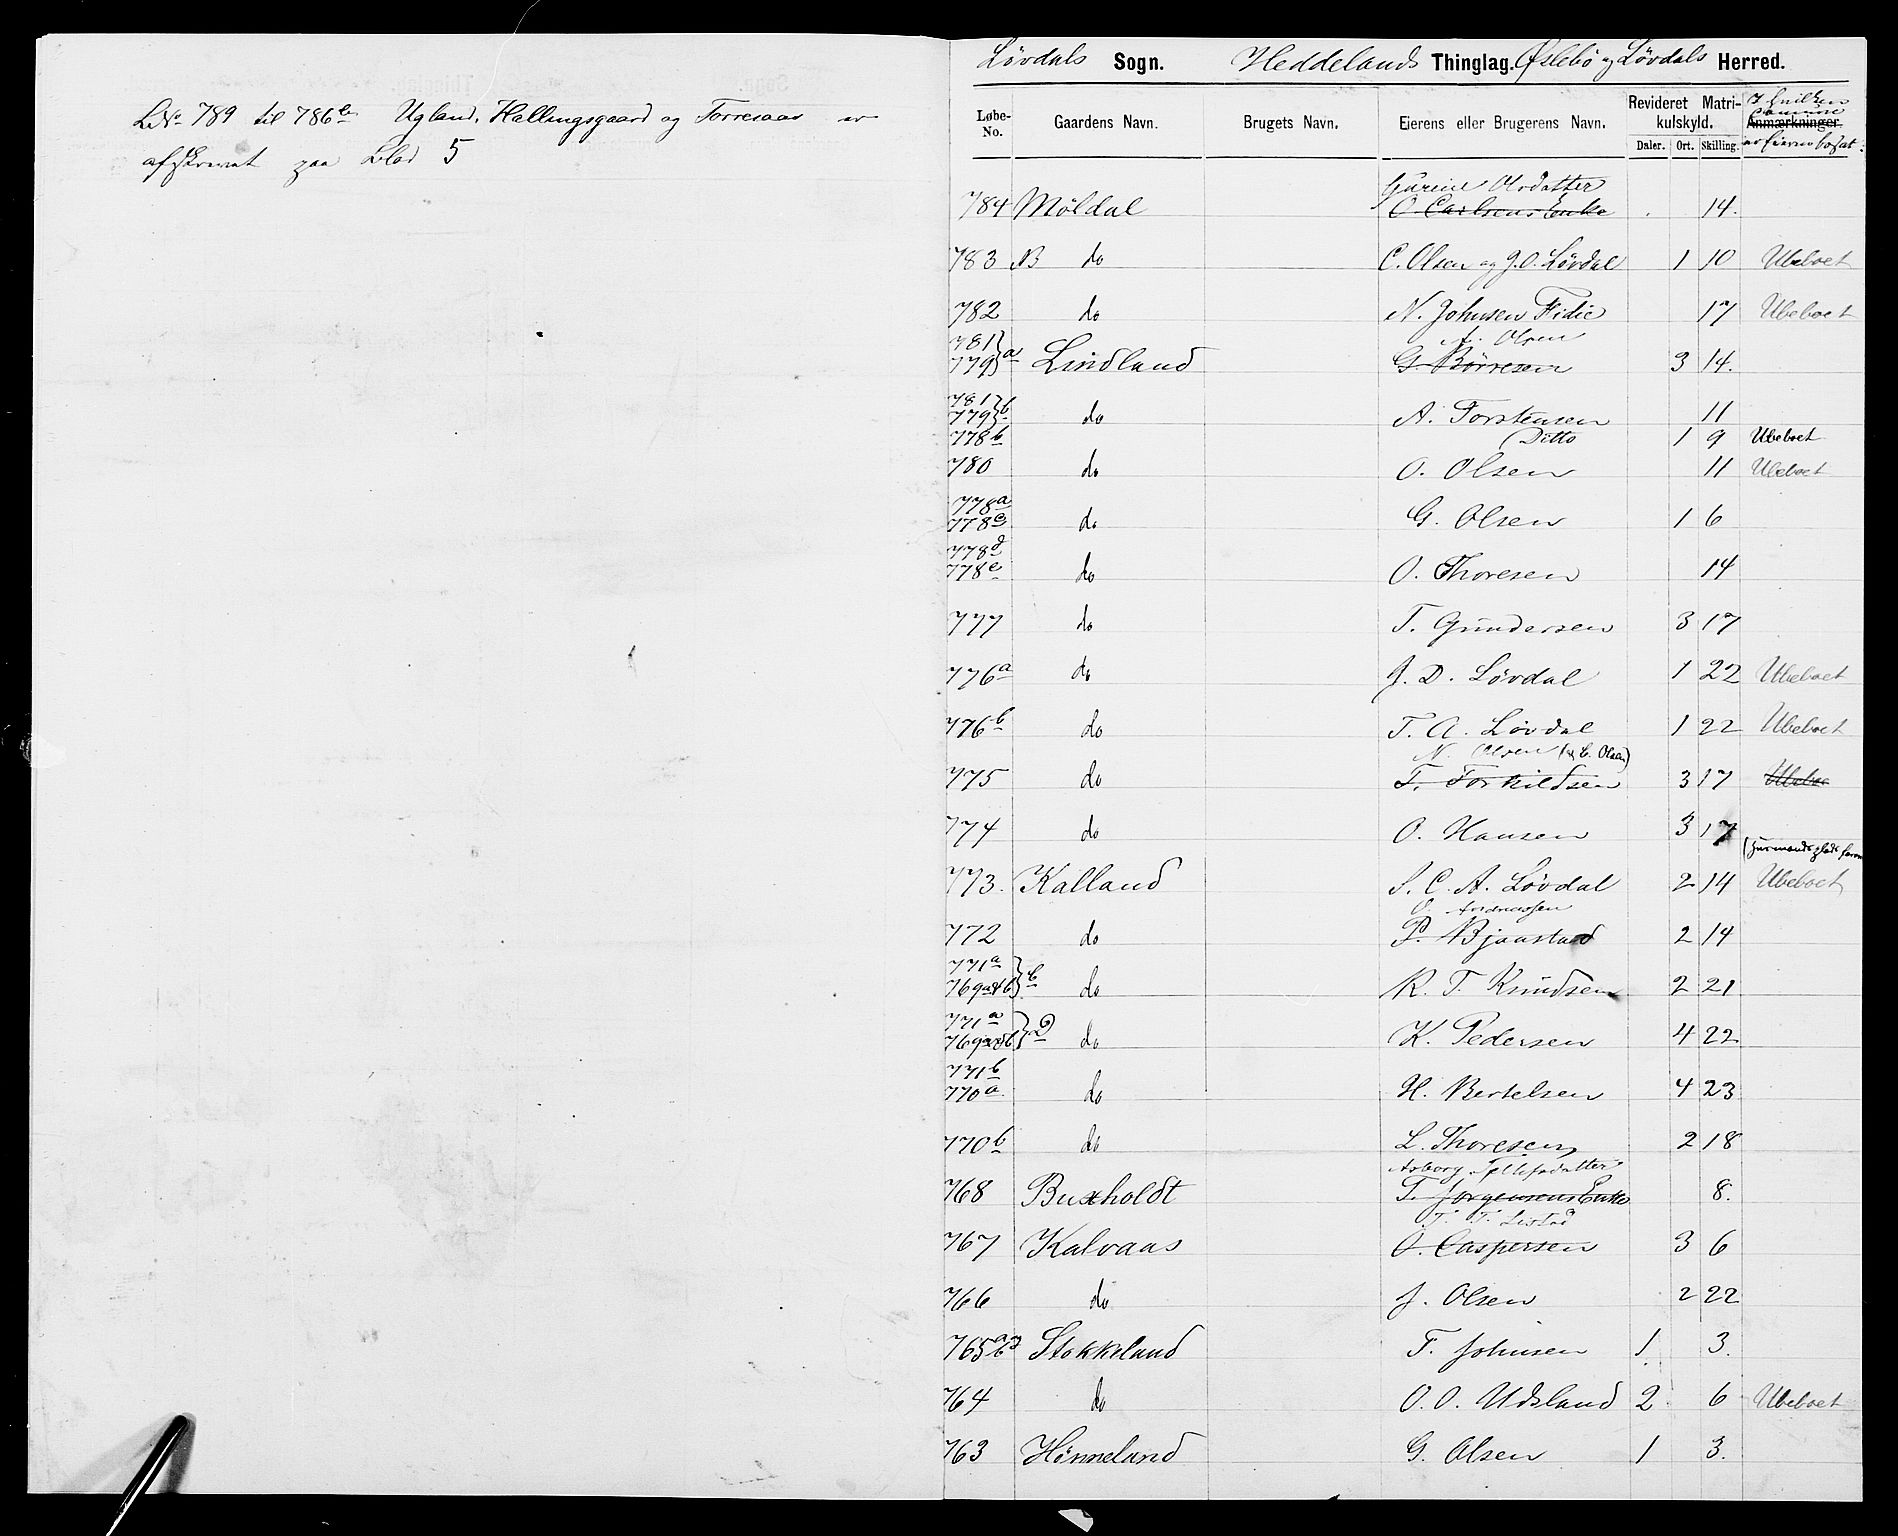 L.No 789 til 786b Ugland, Hallingsgaard og Torresaas er
afskrevet paa Blad 5
Løvdals Sogn. Heddelands Thinglag. Øslebø og Løvdals Herred.
Løbe-No. Gaardens Navn. Brugets Navn. Eierens eller Brugerens Navn. Revideret Matrikulskyld. Anmærkninger. I hvilken
Daler. Ort. Skilling. er Eieren bosat.
Gurine Olsdatter
784 Møldal O. Carlsens Enke 14.
783 B do C. Olsen og J. O. Løvdal 1 10 Ubeboet
782 do N. Johnsen Fidie 17 Ubeboet
781 Olsen
779 a Lindland G. Børresen 3 14.
781
779 b do A. Torstensen 11
778b Ditto 1 9 Ubeboet
780 do O. Olsen 11 Ubeboet
778a
778c do G. Olsen 1 6
778d
778e do O. Thoresen 14
777 do T. Gundersen 3 17
776a do J. D. Løvdal 1 22 Ubeboet
776b do T. A. Løvdal 1 22 Ubeboet
N. Olsen (og C. Olsen)
775 do T. Torkildsen 3 17 Ubeboe
774 do O. Hansen 3 17
(Husmandsplads
773. Kalland S. C. A. Løvdal 2 14 Ubeboet
Andreassen
772 do P. Bjaastad 2 14
771a
769a&b b do R. T. Knudsen 2 21
771a
769a&b a do K. Pedersen 4 22
771b
770a do H. Bertelsen 4 23
770b do L. Thoresen 2 18
Asborg Tellefsdatter
768 Buxholdt T. Jørgensens Enke 8.
T. T. Listad
767 Kalvaas O. Caspersen 3 6
766 do J. Olsen 2 22
765 ab Stokkeland F. Johnsen 1 3.
764 do O. O. Udsland 2 6 Ubeboet
763 Hønneland G. Olsen 1 3.